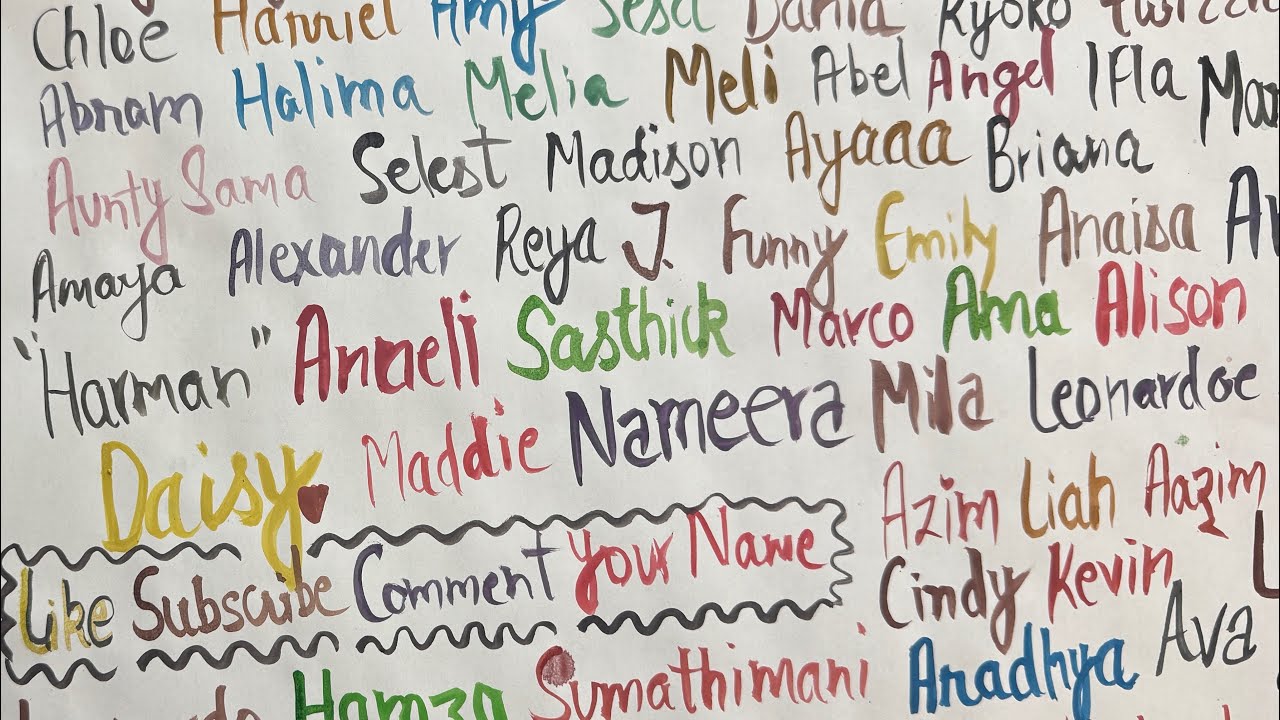 Chloe Harriel Amy Sesa Dania Kyoko
Abram Halima Melia Meli Abel Angel Ifla
Aunty Sama Selest Madison Ayaaa Briana
Amaya Alexander Reya J. Funny Emily Anaisa
"Harman" Anaeli Sasthick Marco Ama Alison
Daisy Maddie Nameera Mila Leonardoe
Azim Liah Aazim
Like Subscribe Comment Your Name Cindy Kevin
Hamza Sumathimani Aradhya Ava